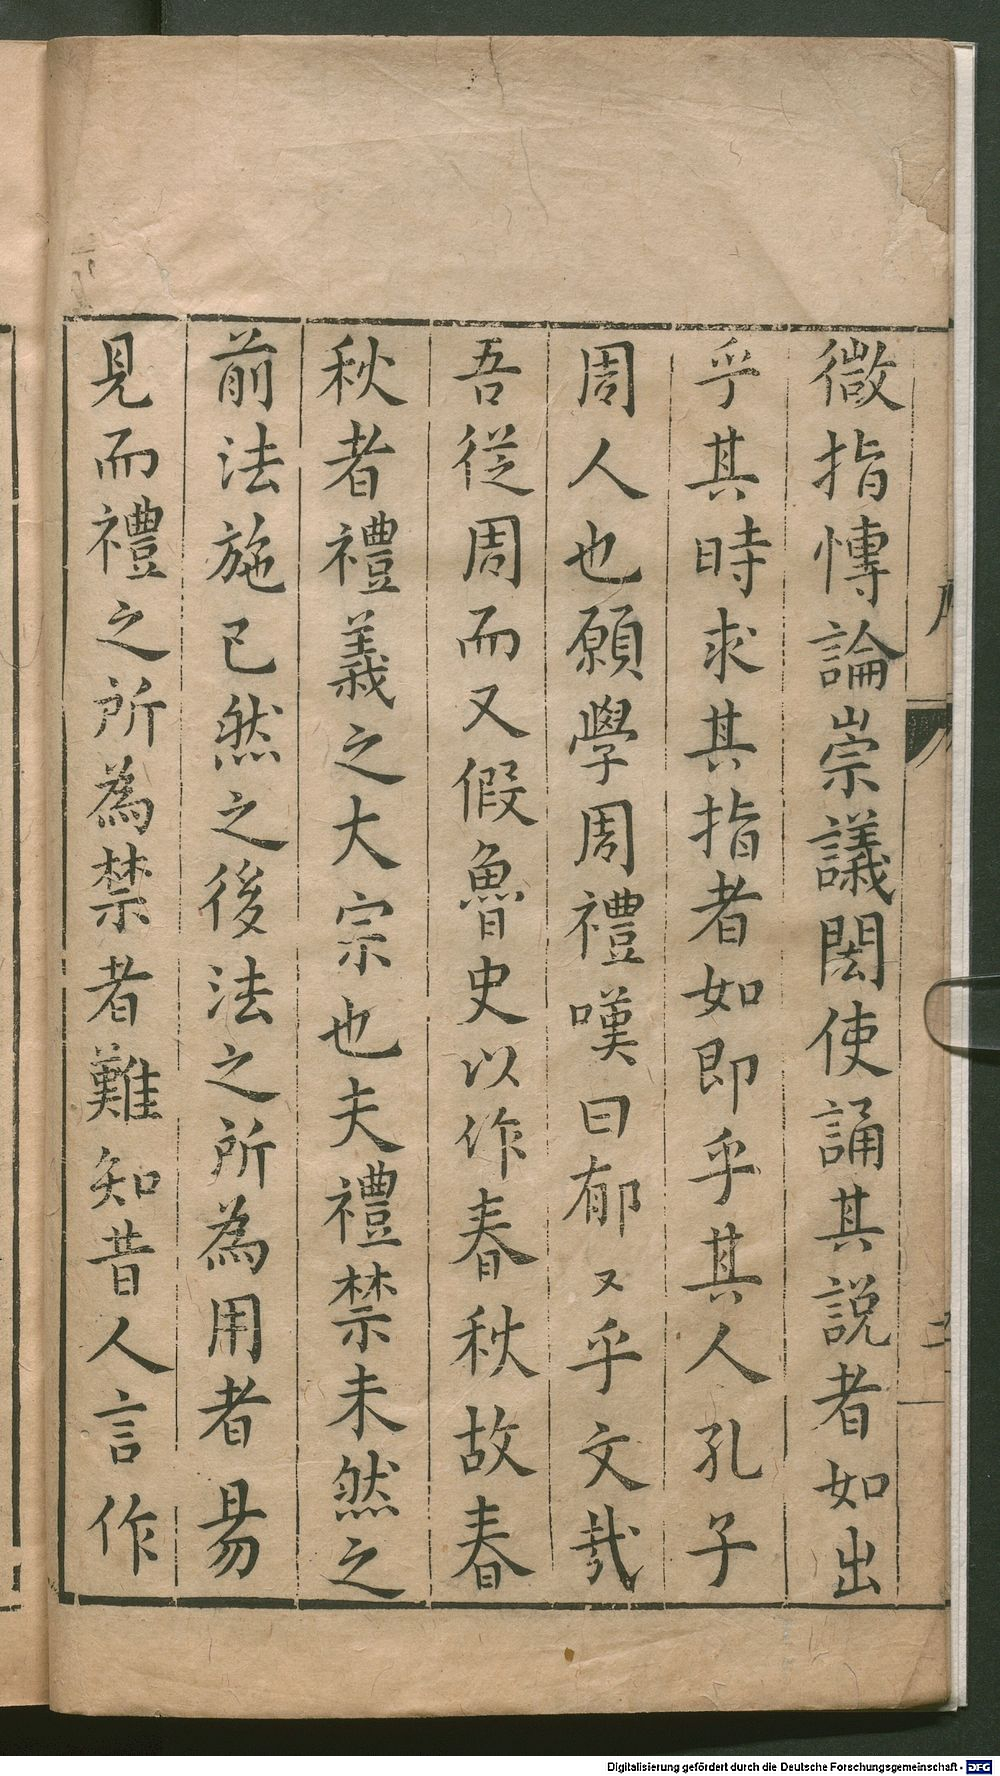 微指慱論崇議閎使誦其説者如出
乎其時求其指者如即乎其人孔子
周人也願學周禮嘆曰郁〻乎文㦲
吾從周而又假魯史以作春秋故春
秋者禮義之大宗也夫禮禁未然之
前法施已然之後法之所為用者易
見而禮之所為禁者難知昔人言作
Digitalisierung gefördert durch die Deutsche Forschungsgemeinschaft - DFG